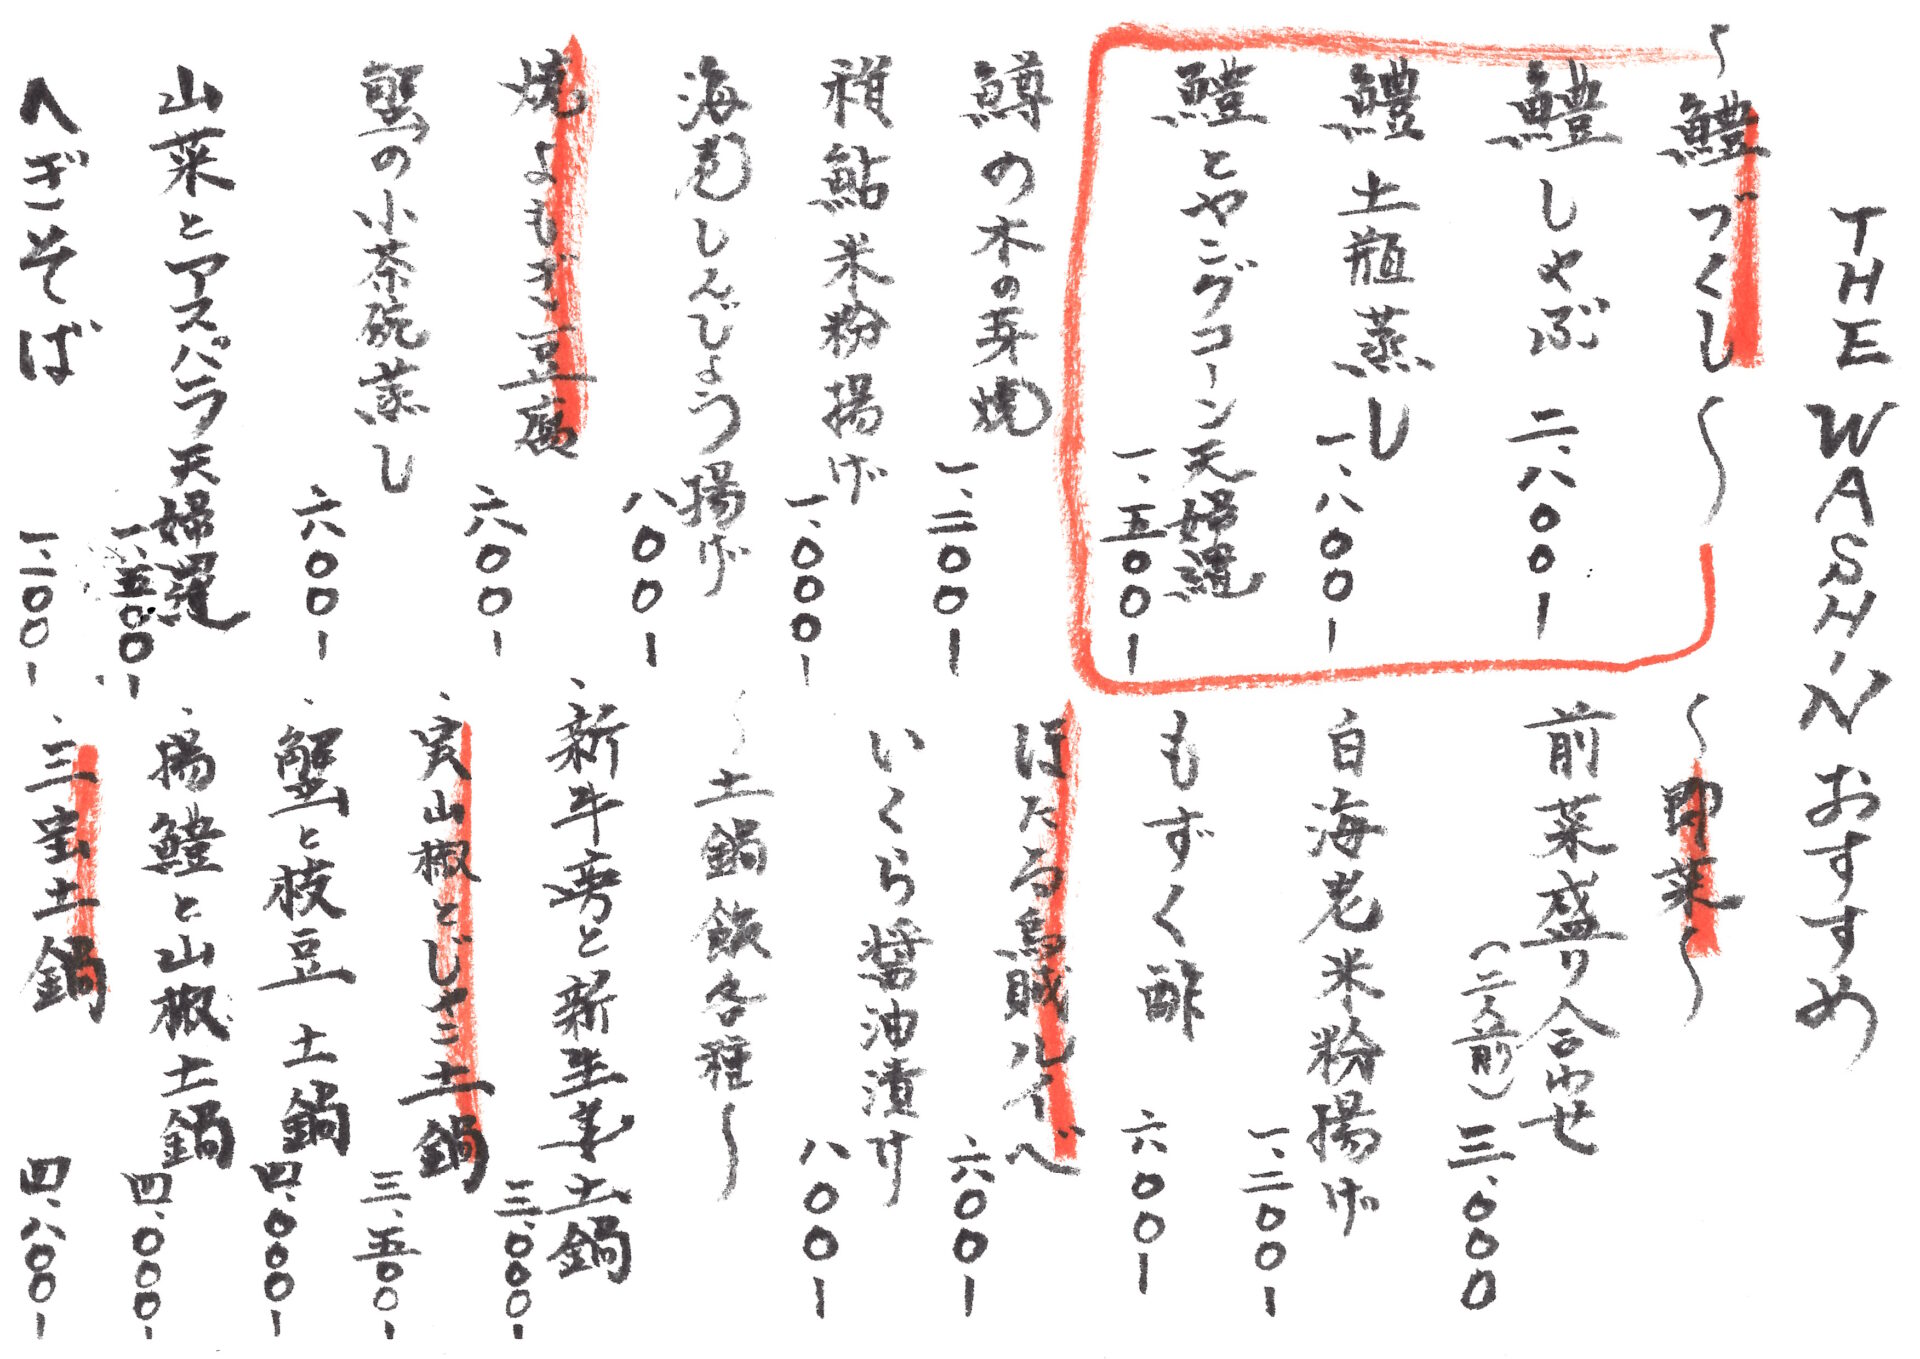 THE WASHIN おすすめ
〜鱧づくし〜
鱧しゃぶ 二、八〇〇ー
鱧土瓶蒸し 一、八〇〇ー
鱧とヤングコーン天婦羅 一、五〇〇ー
鱒の木の芽焼 一、二〇〇ー
稚鮎米粉揚げ 一、〇〇〇ー
海老しんじょう揚げ 八〇〇ー
焼よもぎ豆腐 六〇〇ー
蟹の小茶碗蒸し 六〇〇ー
山菜とアスパラ天婦羅 一、五〇〇ー
へぎそば 一、二〇〇ー
〜即菜〜
前菜盛り合わせ
(二人前) 三、〇〇〇
白海老米粉揚げ 一、二〇〇ー
もずく酢 六〇〇ー
ほたる烏賊ルイベ 六〇〇ー
いくら醤油漬け 八〇〇ー
〜土鍋飯各種〜
、新牛蒡と新生姜土鍋 三、〇〇〇ー
、実山椒とじゃこ土鍋 三、五〇〇ー
、蟹と枝豆土鍋 四、〇〇〇ー
、揚鱧と山椒土鍋 四、〇〇〇ー
、三宝土鍋 四、八〇〇ー